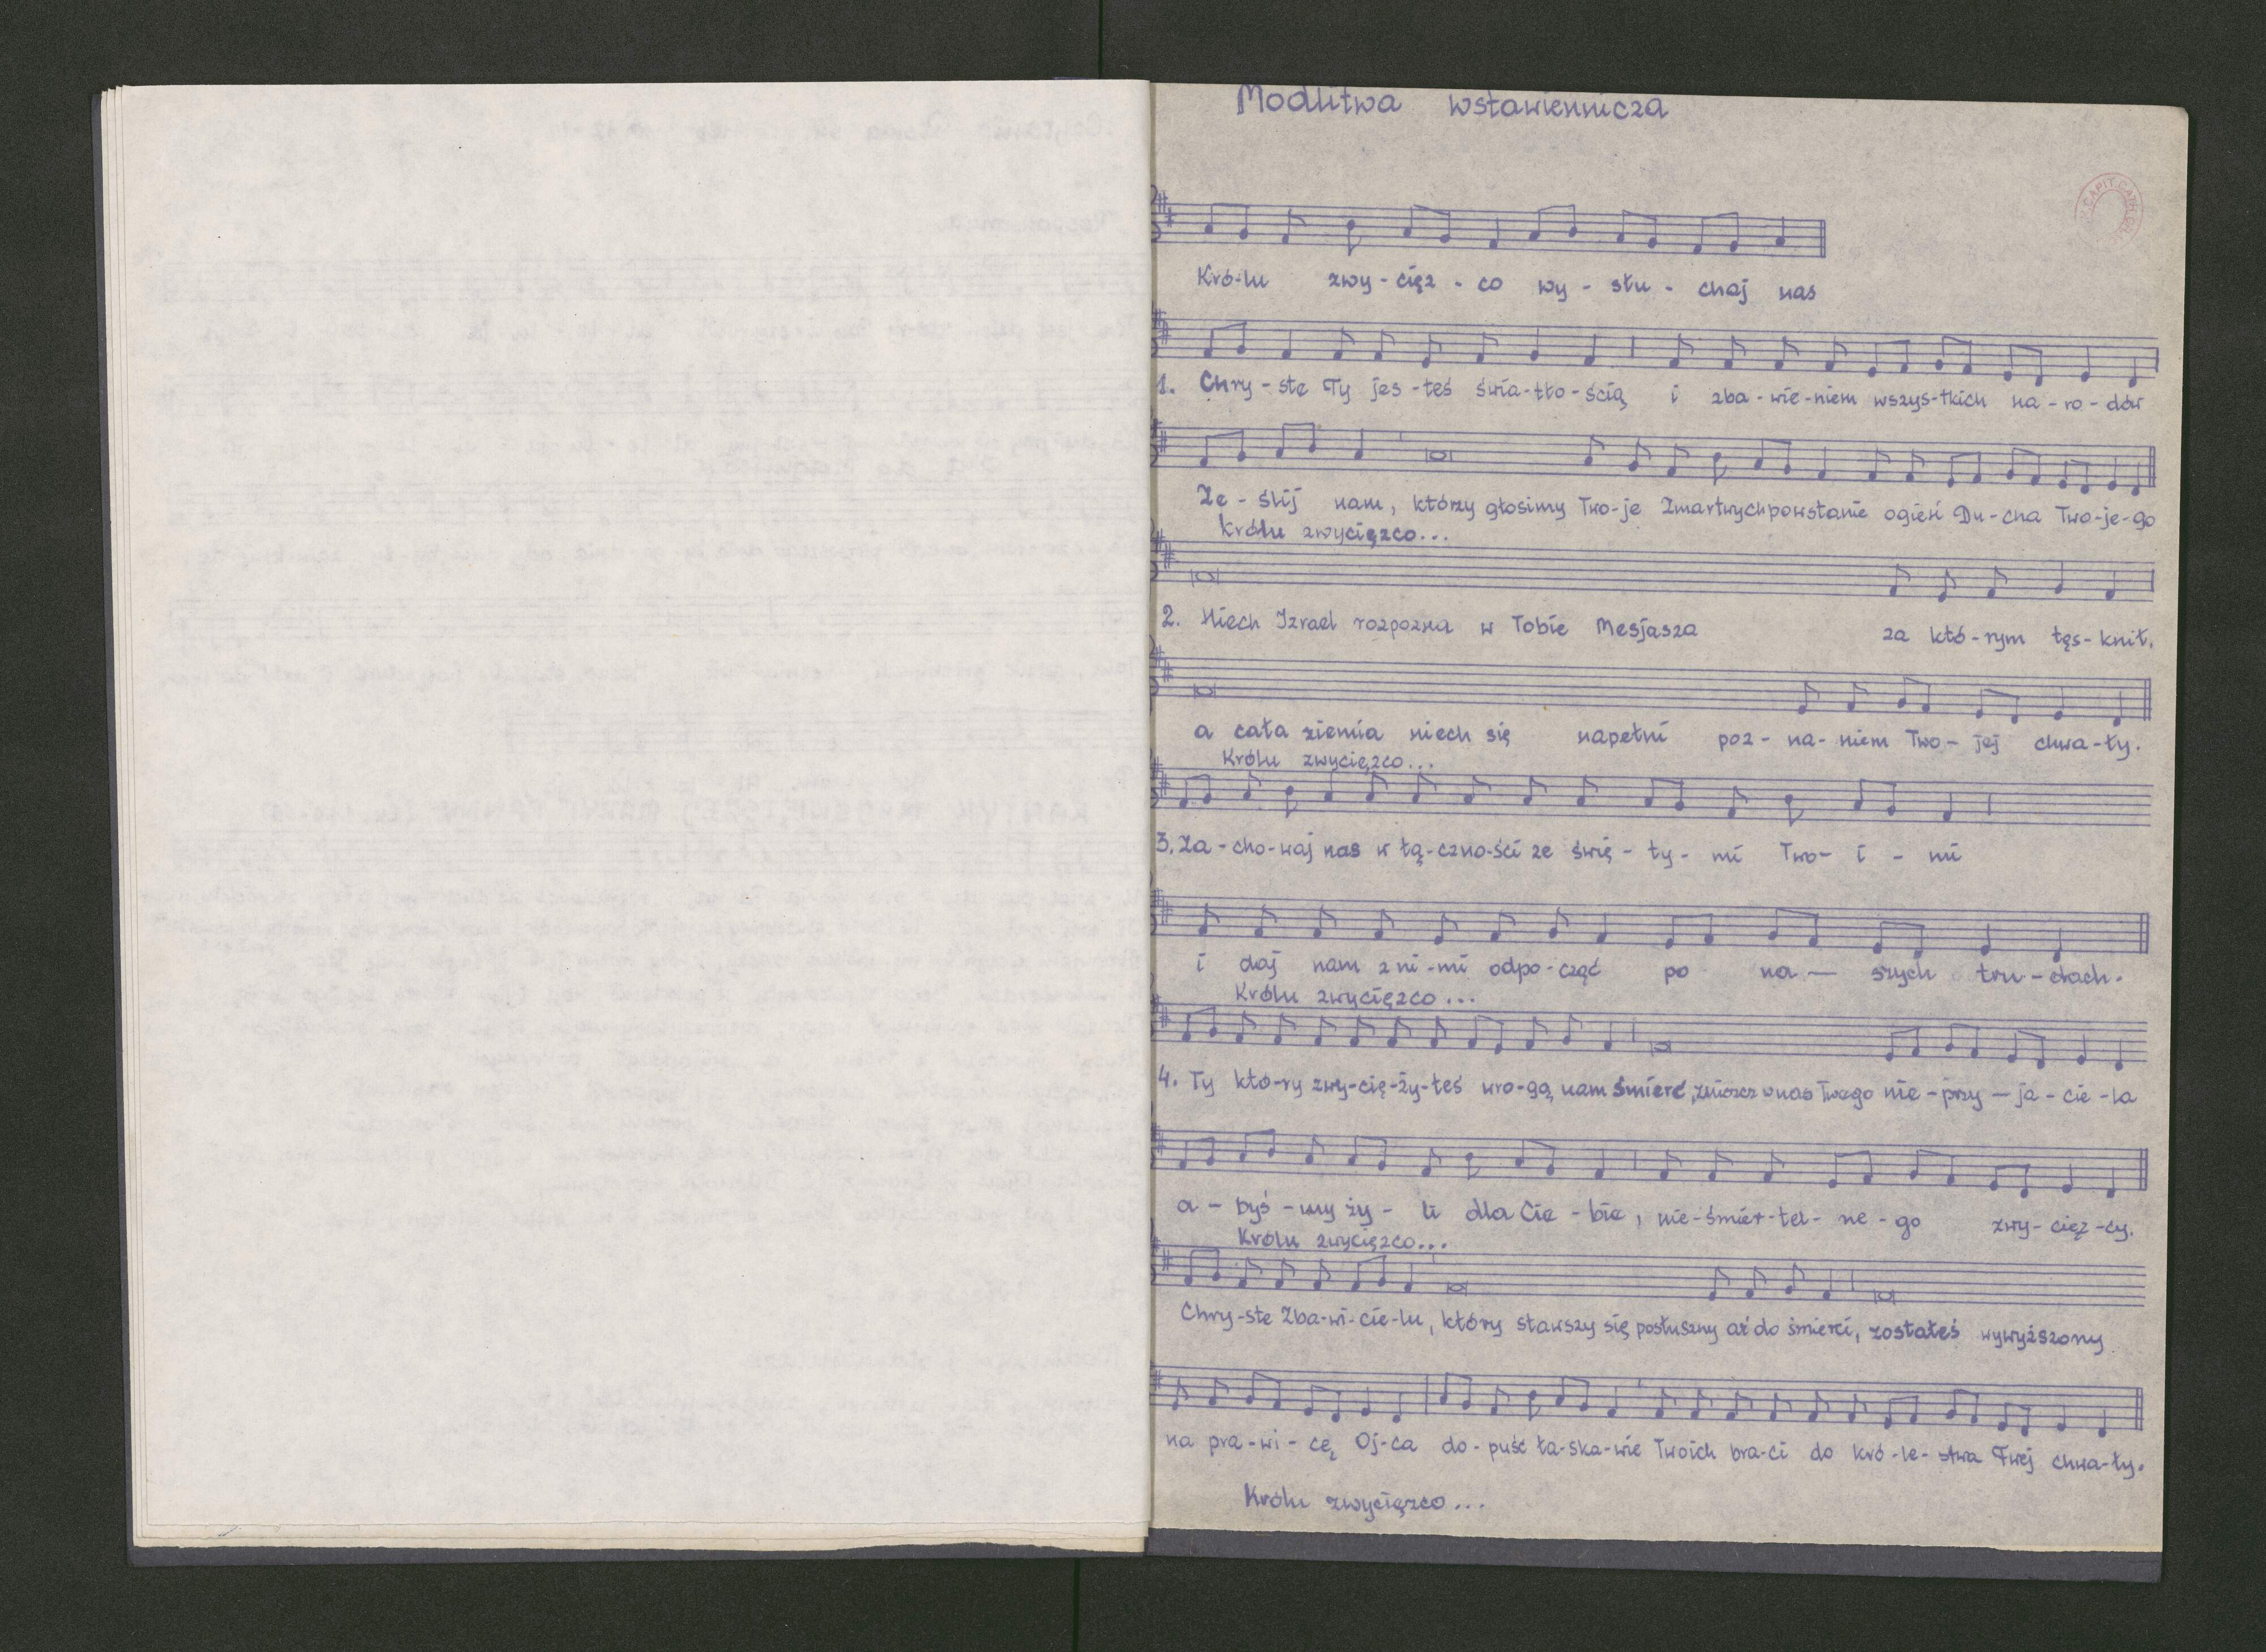 Modlitwa wstawiennicza
Kró-lu zwy-cięz-co wy-słu-chaj nas
1. Chry-ste Ty jes-teś świa-tło-ścią i zba-wie-niem wszys-tkich na-ro-dów
Ze-ślij nam, którzy głosimy Two-je Zmartwychpowstanie ogień Du-cha Two-je-go
Królu zwycięzco...
2. Niech Izrael rozpozna w Tobie Mesjasza za któ-rym tęs-knił.
a cała ziemia niech się napełni poz-na-niem Two-jej chwa-ły.
Królu zwycięzco...
3. Za-cho-waj nas w łą-czno-ści ze świę-ty-mi Two-i-mi
i daj nam z ni-mi odpo-cząć po na-szych tru-dach.
Królu zwycięzco...
4. Ty któ-ry zwy-cię-ży-łeś wro-gą nam śmierć, zniszcz w nas Twego nie-przy-ja-cie-la
a-byś-my ży-li dla Cie-bie, nie-śmier-tel-ne-go zwy-cięz-cy.
Królu zwycięzco...
Chry-ste Zba-wi-cie-lu, który stawszy się posłuszny aż do śmierci, zostałeś wywyższony
na pra-wi-cę Oj-ca do-puść ła-ska-wie Twoich bra-ci do kró-le-stwa Twej chwa-ły.
Królu zwycięzco...